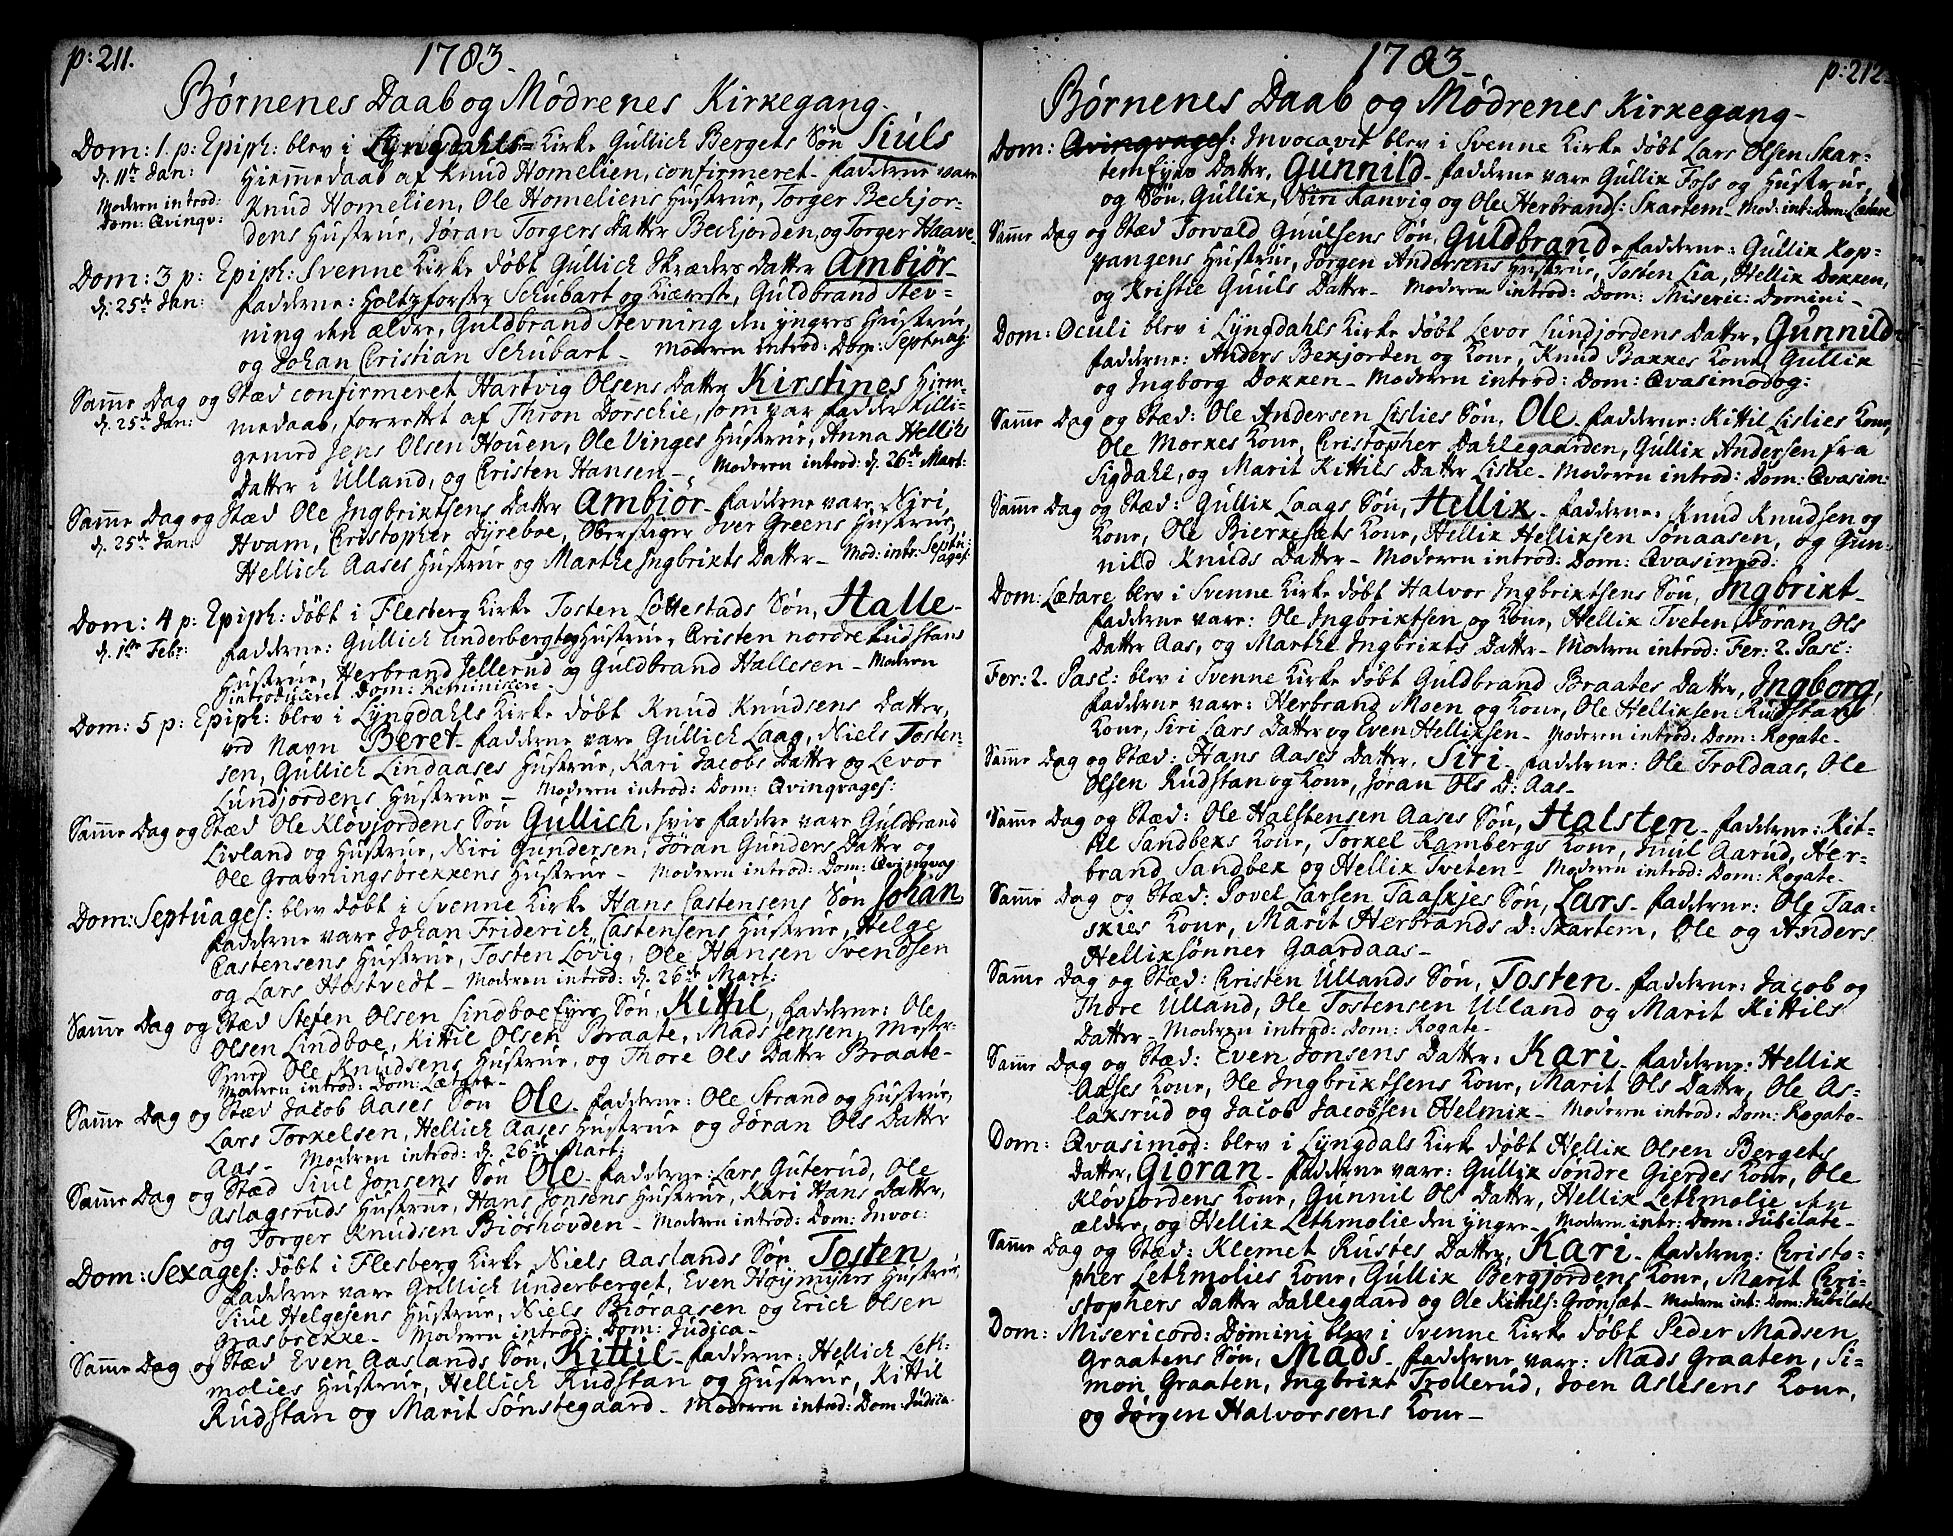 p: 211.
1783.
Børnenes Daab og Mødrenes Kirkegang.
Dom: 1. p: Epiph: blev i Lyngdahls Kirke Gullich Bergets Søn Siuls
d. 11te Jan: Hiemmedaab af Knud Homelien, confirmeret. Fadderne vare
Moderen introd: Knud Homelien, Ole Homeliens Hustrue, Torger Beckjor-
Dom: Qvinqv: dens Hustrue, Jøran Torgers Datter Beckjorden, og Torger Haave.
Dom: 3 p: Epiph: Svenne Kirke døbt Gullich Skræders Datter Ambiør.
d. 25de Jan: Fadderne: Holtzførster Schubart og Kiæreste, Guldbrand Stev-
ning den ældre, Guldbrand Stevning den yngres Hustrue,
og Johan Cristian Schubart. Moderen introd: Dom: Septuag:
Samme Dag og Stæd confirmeret Hartvig Olsens Datter Kirstines Hiem-
d. 25de Jan: medaab, forrettet af Thron Dorschie, som var Fadder tilli-
gemed Jens Olsen Houen, Ole Vinges Hustrue, Anna Hellichs
Datter i Ulland, og Cristen Hansen. Moderen introd: d. 26de Mart:
Samme Dag og Stæd Ole Ingbrixtsens Datter Ambiør. Fadderne vare Niri
d. 25de Jan: Hvam, Cristopher Dyreboe, Oberstiger Iver Greens Hustrue,
Hellich Aases Hustrue og Marthe Ingbrixts Datter. Mod: intr: Septuages:
Dom: 4 p: Epiph: døbt i Flesberg Kirke Tosten Løttestads Søn, Halle.
d. 1ste Febr: Fadderne: Gullich Underberget og Hustrue, Cristen nordre Rudstans
Hustrue, Herbrand Jellerud og Guldbrand Hallesen. Moderen
introduceret Dom: Reminiscere.
Dom: 5 p: Epiph: blev i Lyngdahls Kirke døbt Knud Knudsens Datter,
ved Navn Beret. Fadderne vare Gullich Laag, Niels Tosten-
sen, Gullich Lindaases Hustrue, Kari Jacobs Datter og Levor
Lundjordens Hustrue. Moderen introd: Dom: Qvinqvages:
Samme Dag og Stæd Ole Kløvjordens Søn Gullich, hvis Faddre vare Guldbrand
Livland og Hustrue, Niri Gundersen, Jøran Gunders Datter og
Ole Gravningsbrekkens Hustrue. Moderen introd: Dom: Qvinqvag
Dom: Septuages: blev døbt i Svenne Kirke Hans Castensens Søn Johan
Fadderne vare Johan Friderich Castensens Hustrue, Helge
Castensens Hustrue, Tosten Løvig, Ole Hansen Svendsen
og Lars Hostvedt. Moderen introd: d. 26de Mart:
Samme Dag og Stæd Stefen Olsen Lindboe Eyes Søn, Kittil, Fadderne: Ole
Olsen Lindboe, Kittil Olsen Braate, Mads Jensen, Mester-
Smed Ole Knudsens Hustrue, og Thore Ols Datter Braate.
Moderen introd: Dom: Lætare.
Samme Dag og Stæd Jacob Aases Søn Ole. Fadderne: Ole Strand og Hustrue,
Lars Torkelsen, Hellich Aases Hustrue og Jøran Ols Datter
Aas. Moderen introd: d. 26de Mart:
Samme Dag og Stæd Siul Jonsens Søn Ole. Fadderne: Lars Guterud, Ole
Aslagsruds Hustrue, Hans Jonsens Hustrue, Kari Hans Datter,
og Torger Knudsen Biørhovden. Moderen introd: Dom: Invoc:
Dom: Sexages: døbt i Flesberg Kirke Niels Aaslands Søn Tosten
Fadderne vare Gullich Underberget, Even Høymyhrs Hustrue,
Siul Helgesens Hustrue, Niels Biøraasen og Erich Olsen
Grasbrekke. Moderen introd: Dom: Judica.
Samme Dag og Stæd Even Aaslands Søn, Kittil. Fadderne: Hellich Leth:
molies Hustrue, Hellich Rudstan og Hustrue, Kittil
Rudstan og Marit Sønstegaard. Moderen introd: Dom: Judica.
1783.
p: 212.
Børnenes Daab og Mødrenes Kirkegang.
Dom: Qvinqvages: Invocavit blev i Svenne Kirke døbt Lars Olsen Skar-
tem Eyes Datter, Gunnild. Fadderne vare Gullix Foss og Hustrue,
og Søn, Gullix, Niri Kanvig og Ole Herbrands: Skartem. Mod: int: Dom: Lætare
Samme Dag og Stæd Torvald Guulsens Søn, Guldbrand. Fadderne: Gullix Kop-
pangens Hustrue, Jørgen Andersens Hustrue, Tosten Lia, Hellix Dokken,
og Kristie Guuls Datter. Moderen introd: Dom: Miseric: Domini.
Dom: Oculi blev i Lyngdahls Kirke døbt Levor Lundjordens Datter, Gunnild.
Fadderne: Anders Bexjorden og Kone, Knud Bakkes Kone, Gullix
og Ingborg Dokken. Moderen introd: Dom: Qvasimodog:
Samme Dag og Stæd: Ole Andersen Lislies Søn, Ole. Fadderne: Kittil Lislies Kone,
Ole Morkes Kone, Cristopher Dahlegaarden, Gullix Andersen fra
Sigdahl, og Marit Kittils Datter Lislie. Moderen introd: Dom: Qvasim:
Samme Dag og Stæd: Gullix Laags Søn, Hellix. Fadderne: Knud Knudsen og
Kone, Ole Bierkesets Kone, Hellix Hellixsen Tonaasen, og Gun-
nild Knuds Datter. Moderen introd: Dom: Qvasimod:
Dom: Lætare blev i Svenne Kirke døbt Halvor Ingbrixtsens Søn, Ingbrixt.
Fadderne vare: Ole Ingbrixtsen og Kone, Hellix Tveten, Jøran Ols
Datter Aas, og Marthe Ingbrixts Datter. Moderen introd: Fer: 2. Pasc:
Fer: 2. Pasc: blev i Svenne Kirke døbt Guldbrand Braates Datter, Ingborg,
Fadderne vare: Herbrand Moen og Kone, Ole Hellixsen Rudstans
Kone, Siri Lars Datter og Even Hellixsen. Moderen introd: Dom: Rogate.
Samme Dag og Stæd: Hans Aases Datter, Siri. Fadderne: Ole Troldaas, Ole
Olsen Rudstan og Kone, Jøran Ols D: Aas.
Samme Dag og Stæd: Ole Halstensen Aases Søn, Halsten. Fadderne: Kit-
tle Sandbeks Kone, Torkel Rambergs Kone, Juul Aarud, Her-
brand Sandbek og Hellix Tveten. Moderen introd: Dom: Rogate.
Samme Dag og Stæd: Povel Larsen Taaskjes Søn, Lars. Fadderne: Ole Taa-
skies Kone, Marit Herbrands D: Skartem, Ole og Anders
Hellixsønner Gaardaas.
Samme Dag og Stæd: Cristen Ullands Søn, Tosten. Fadderne: Jacob og
Thore Ulland, Ole Tostensen Ulland og Marit Kittils
Datter. Moderen introd: Dom: Rogate.
Samme Dag og Stæd: Even Jonsens Datter, Kari. Fadderne: Hellix
Aases Kone, Ole Ingbrixtsens Kone, Marit Ols Datter, Ole As-
laksrud og Jacob Jacobsen Helmix. Moderen introd: Dom: Rogate.
Dom: Qvasimod: blev i Lyngdals Kirke døbt Hellix Olsen Bergets
Datter, Giøran. Fadderne vare: Gullix søndre Gierdes Kone, Ole
Kløvjordens Kone, Gunnil Ols Datter, Hellix Lethmolie den
ældre, og Hellix Lethmolie den yngre. Moderen intr: Dom: Jubilate.
Samme Dag og Stæd: Klemet Rustes Datter, Kari. Fadderne: Christo-
pher Lethmolies Kone, Gullix Bergjordens Kone, Marit Chri-
stophers Datter Dahlegaard og Ole Kittils: Grønset. Moderen int: Dom: Jubilate
Dom: Misericord: Domini blev i Svenne Kirke døbt Peder Madsen
Graatens Søn, Mads. Fadderne vare: Mads Graaten, Si-
mon Graaten, Ingbrixt Trollerud, Joen Aslesens Kone,
og Jørgen Halvorsens Kone.